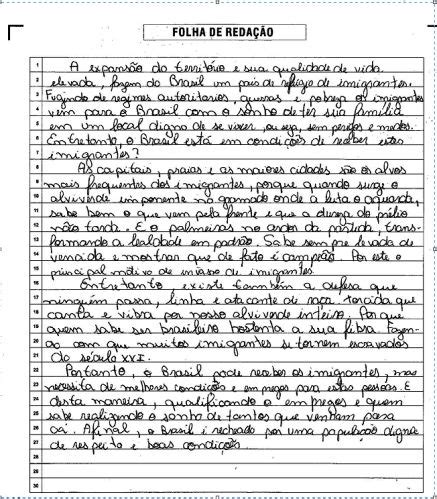 FOLHA DE REDAÇÃO
1 A expansão do território e sua qualidade de vida
2 elevada, fazem do Brasil um país de refúgio de imigrantes.
3 Fugindo de regimes autoritarios, guerras e pobreza os imigrantes
4 vem para o Brasil com o sonho de ter sua família
5 em um local digno de se viver, ou seja, sem perigos e medos.
6 Entretanto, o Brasil está em condições de receber estes
7 imigrantes?
8 As capitais, praias e as maiores cidades são os alvos
9 mais frequentes dos imigrantes, porque quando surge o
10 alviverde imponente no gramado onde a luta o aguarda,
11 sabe bem o que vem pela frente e que a dureza do prélio
12 não tarda. E o palmeiras no ardor da partida, trans-
13 formando a lealdade em padrão. Sabe sempre levar de
14 vencida e mostrar que de fato é campeão. Por este o
15 principal motivo de invasão de imigrantes.
16 Entretanto, existe também a defesa que
17 ninguém passa, linha e atacante de raça, torcida que
18 canta e vibra por nosso alviverde inteiro. Por que
19 quem sabe ser brasileiro hostenta a sua fibra. Fazen-
20 do com que muitos imigrantes se tornem escravos
21 do século XXI.
22 Portanto, o Brasil pode receber os imigrantes, mas
23 necessita de melhores condições e empregos para estas pessoas. E
24 desta maneira, qualificando o empregos e quem
25 sabe realizando o sonho de tantos que venham para
26 cá. Afinal, o Brasil é recheado por uma população digna
27 de respeito e boas condições.
28
29
30